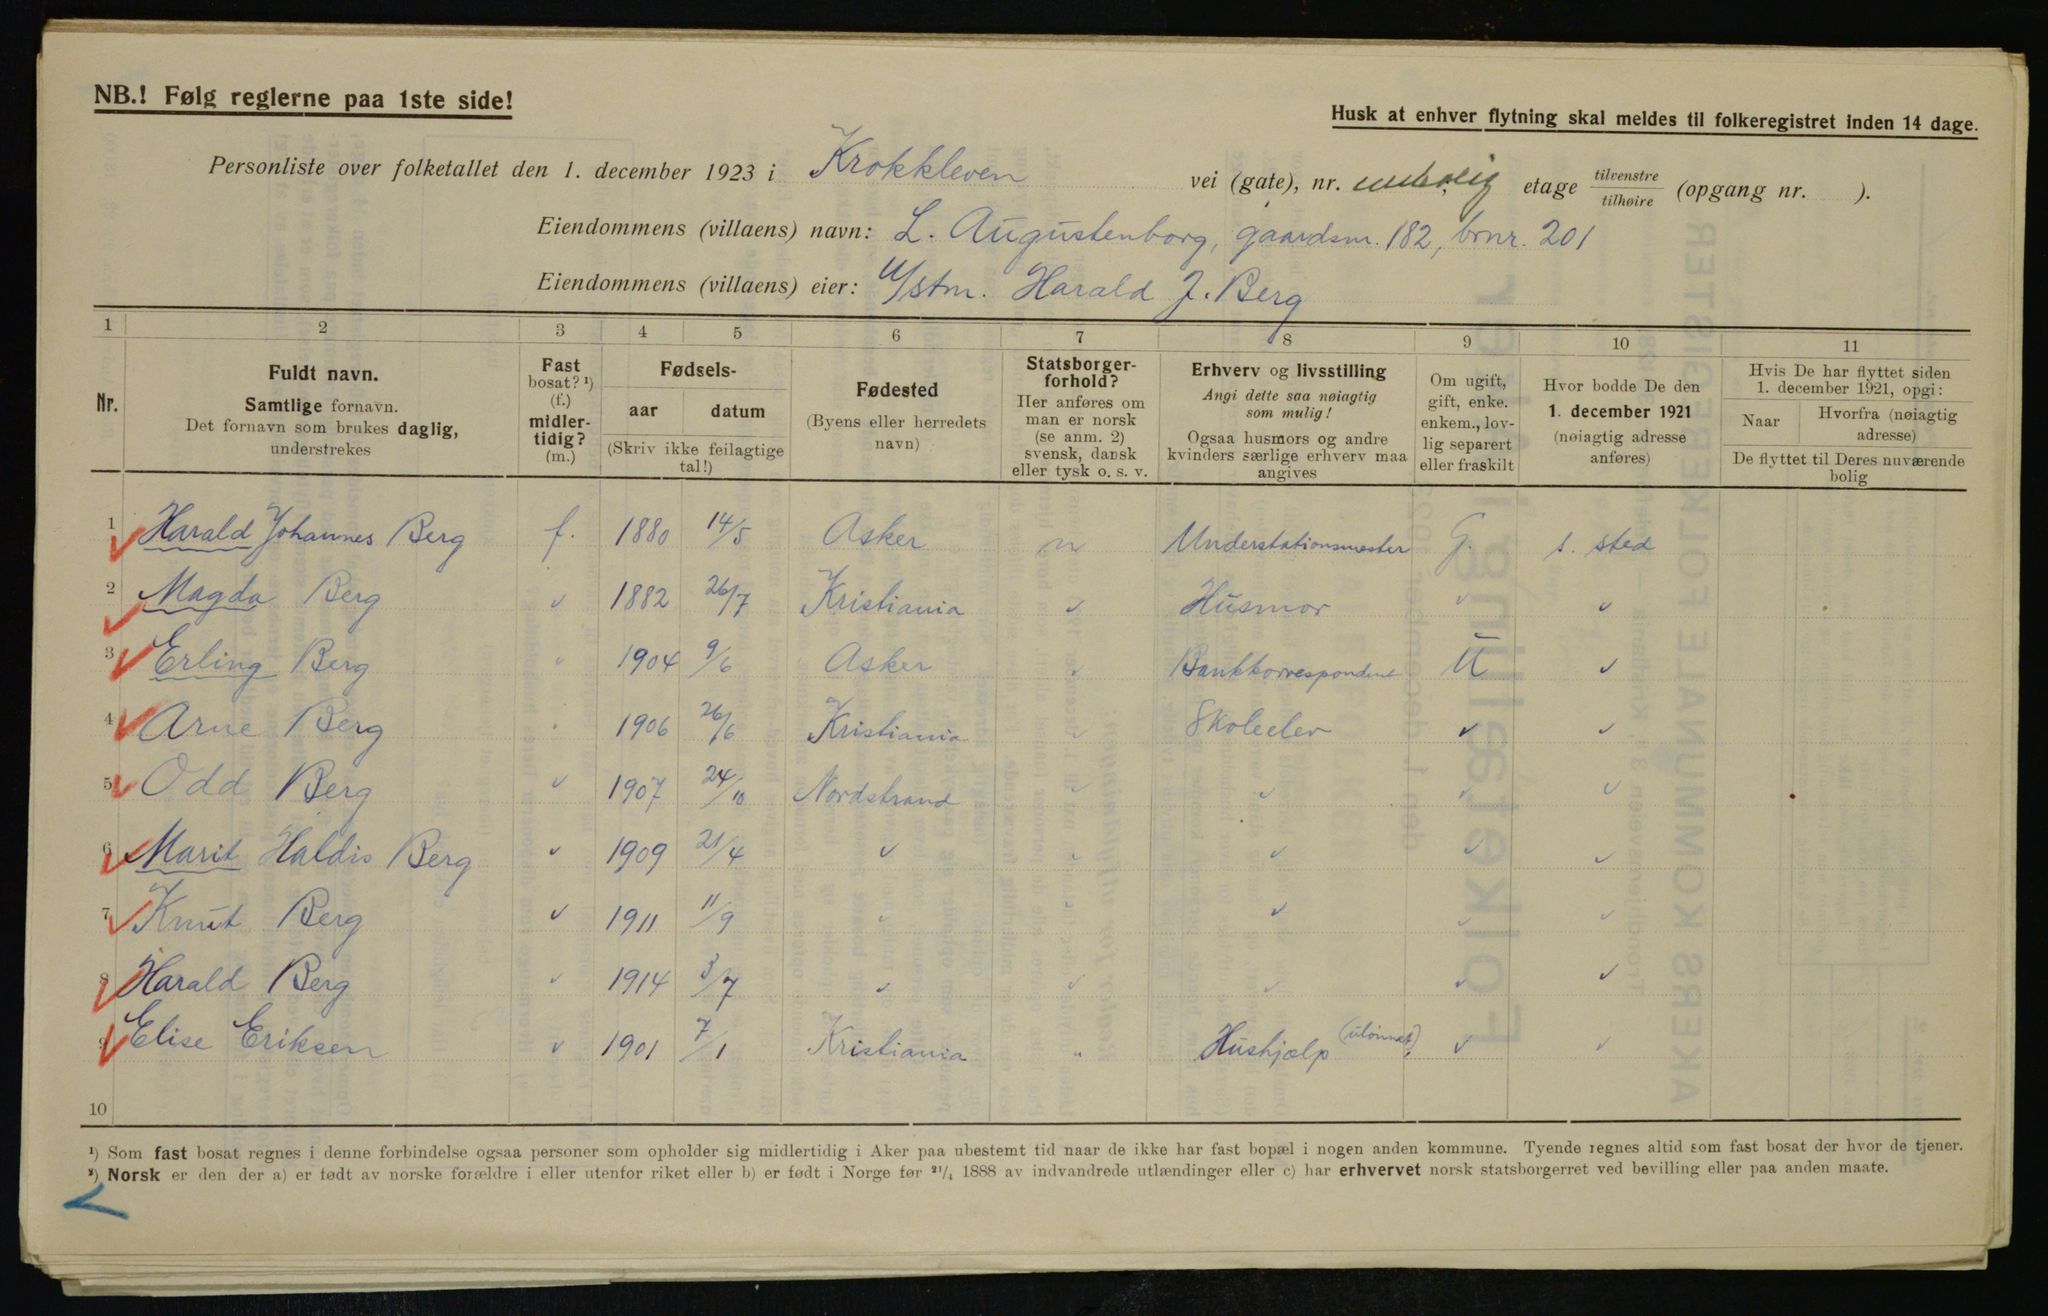 NB.! Følg reglerne paa 1ste side!
Husk at enhver flytning skal meldes til folkeregistret inden 14 dage.
Personliste over folketallet den 1. december 1923 i Krokkleven vei (gate), nr. etage tilvenstre/tilhøire (opgang nr. ).
Eiendommens (villaens) navn: L. Augustenborg, gaardsnr. 182, brnr. 201
Eiendommens (villaens) eier: U/stm. Harald J. Berg
1 2 3 4 5 6 7 8 9 10 11
Nr.
Fuldt navn.
Samtlige fornavn.
Det fornavn som brukes daglig,
understrekes
Fast
bosat? ¹)
(f.)
midler-
tidig?
(m.)
Fødsels-
aar datum
(Skriv ikke feilagtige
tal!)
Fødested
(Byens eller herredets
navn)
Statsborger-
forhold?
Her anføres om
man er norsk
(se anm. 2)
svensk, dansk
eller tysk o. s. v.
Erhverv og livsstilling
Angi dette saa nøiagtig
som mulig!
Ogsaa husmors og andre
kvinders særlige erhverv maa
angives
Om ugift,
gift, enke.
enkem., lov-
lig separert
eller fraskilt
Hvor bodde De den
1. december 1921
(nøiagtig adresse
anføres)
Hvis De har flyttet siden
1. december 1921, opgi:
Naar Hvorfra (nøiagtig
adresse)
De flyttet til Deres nuværende
bolig
1 Harald Johannes Berg f. 1880 14/5 Asker n Understationsmester G. s. sted
2 Magda Berg 1882 26/7 Kristiania Husmor
3 Erling Berg 1904 9/6 Asker Bankkorrespondent U
4 Arne Berg 1906 26/6 Kristiania Skoleelev
5 Odd Berg 1907 24/10 Nordstrand
6 Marit Haldis Berg 1909 21/4
7 Knut Berg 1911 11/9
8 Harald Berg 1914 3/7
9 Elise Eriksen 1901 7/1 Kristiania Hushjælp (ulønnet)
10
¹) Som fast bosat regnes i denne forbindelse ogsaa personer som opholder sig midlertidig i Aker paa ubestemt tid naar de ikke har fast bopæl i nogen anden kommune. Tyende regnes altid som fast bosat der hvor de tjener.
²) Norsk er den der a) er født av norske forældre i eller utenfor riket eller b) er født i Norge før ²¹/₄ 1888 av indvandrede utlændinger eller c) har erhvervet norsk statsborgerret ved bevilling eller paa anden maate.